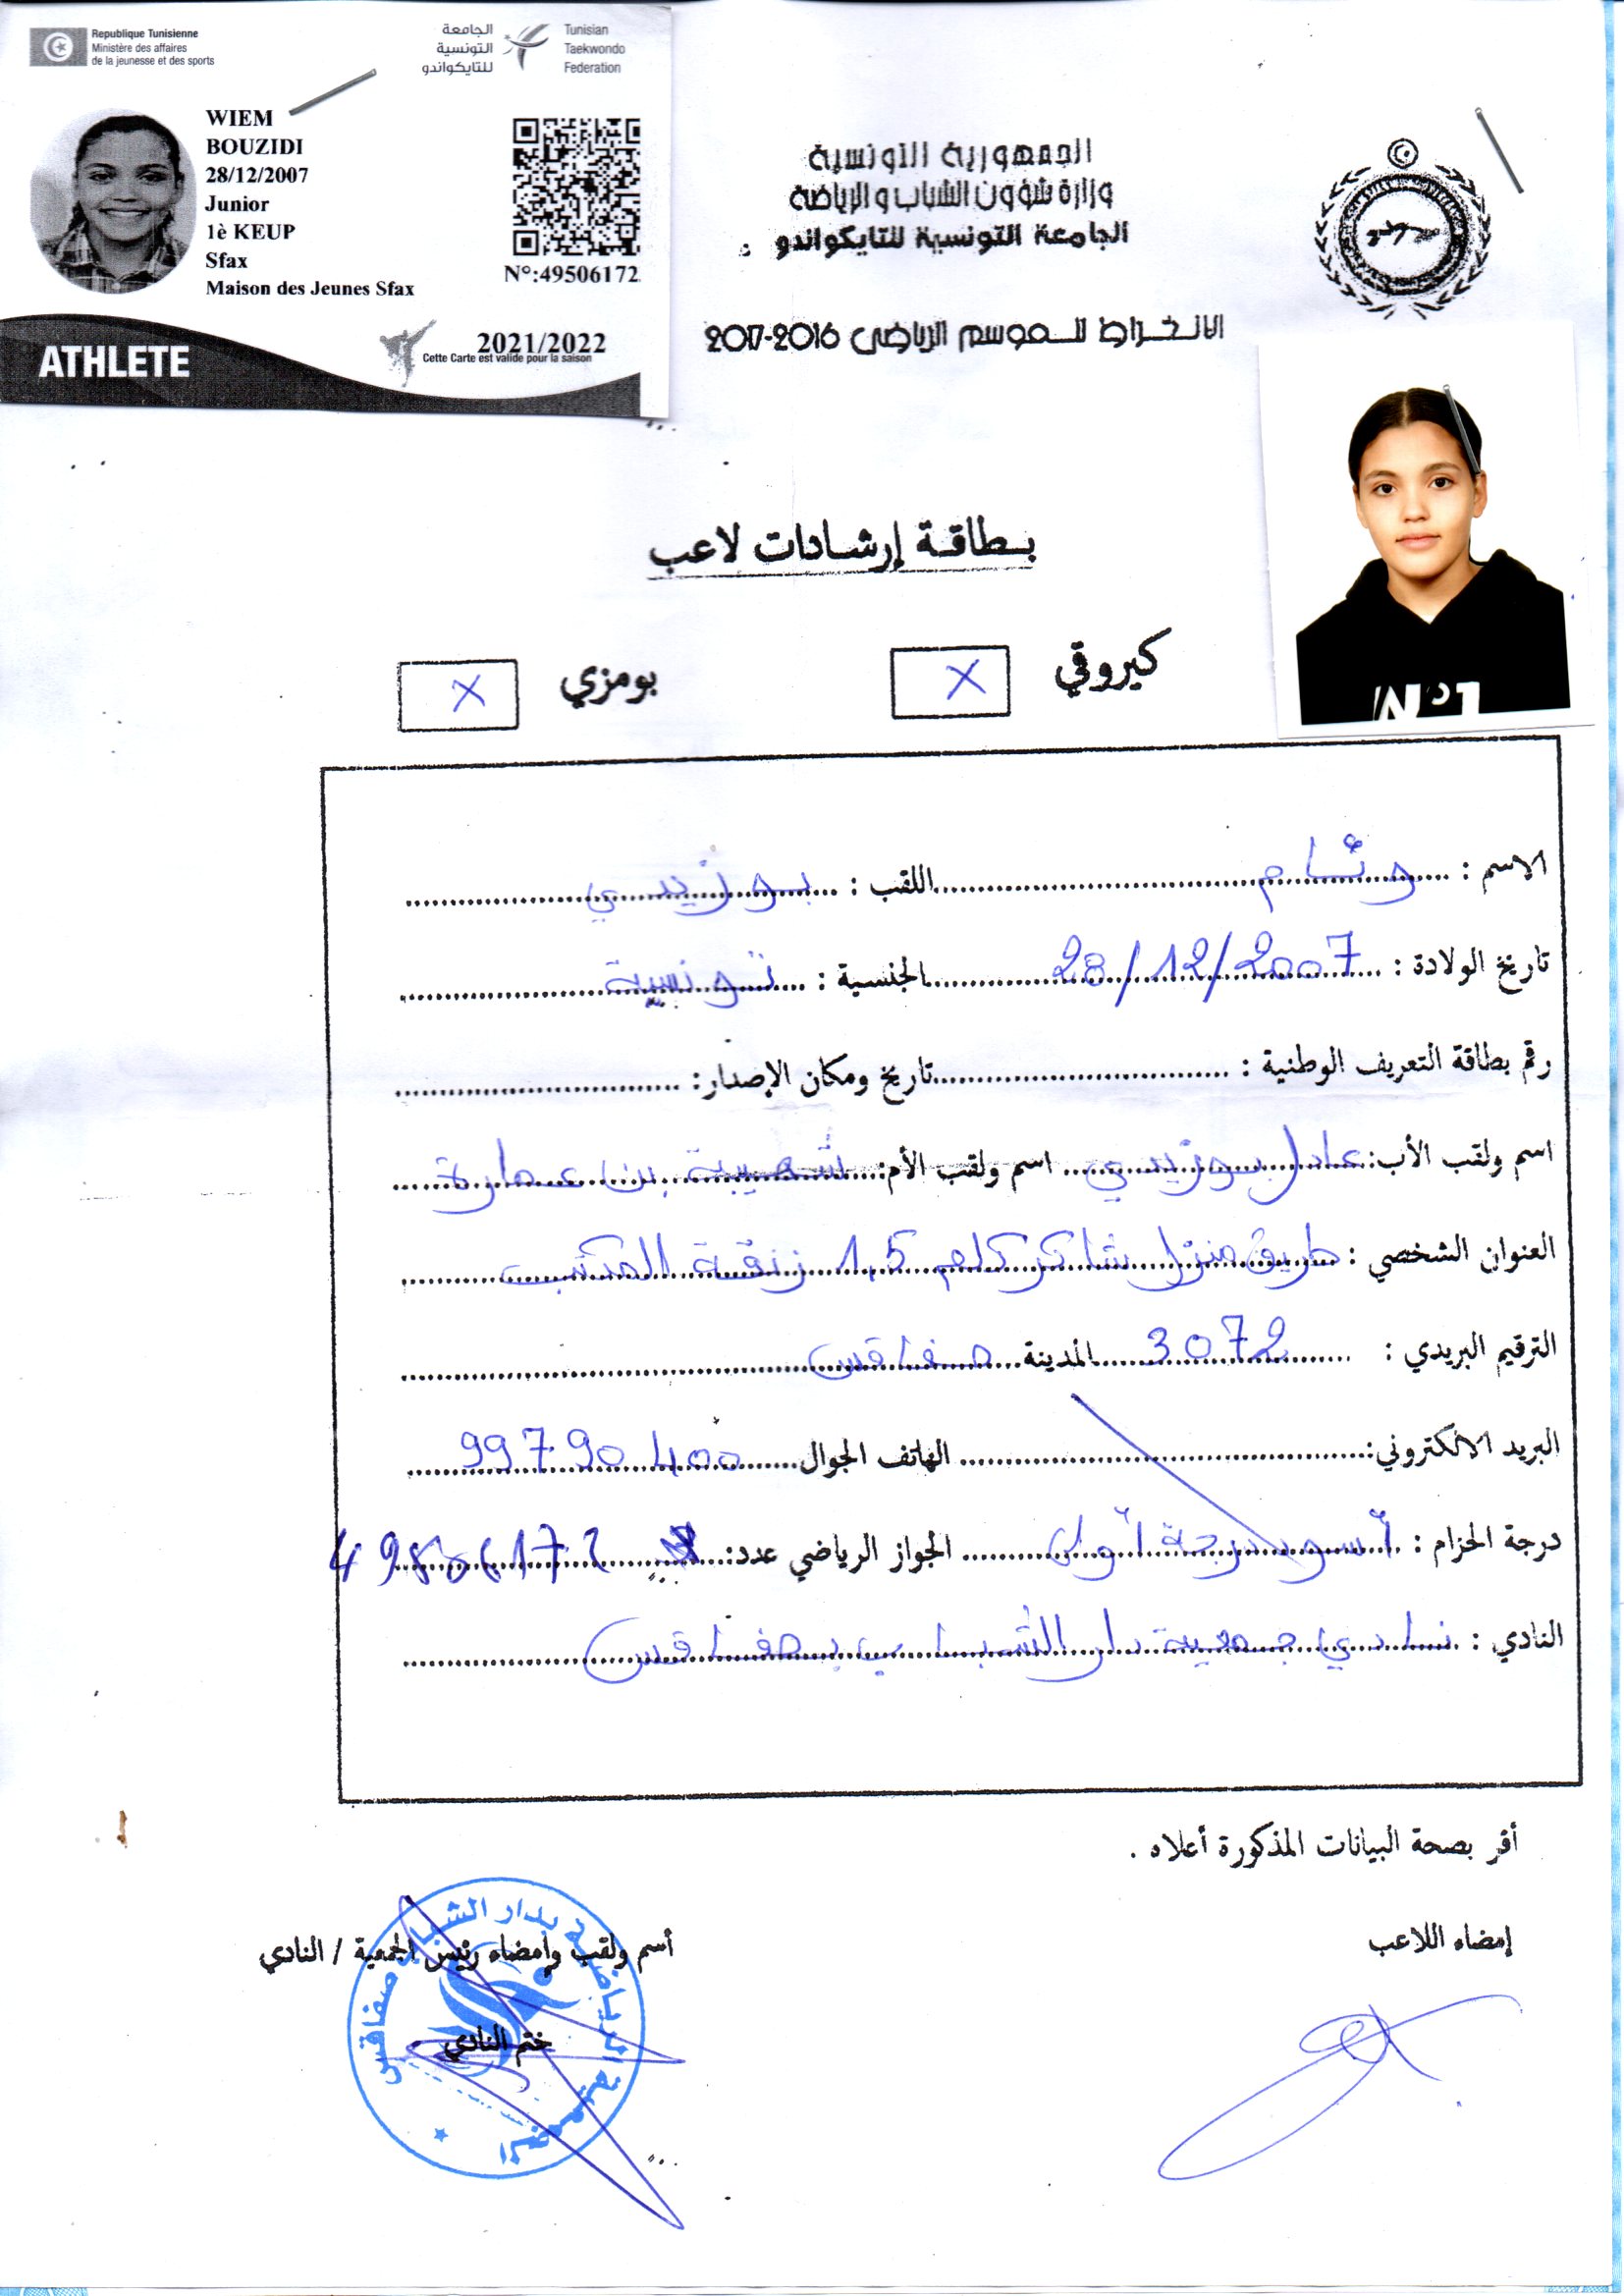 Republique Tunisienne
Ministère des affaires
de la jeunesse et des sports
الجامعة
التونسية
للتايكواندو
Tunisian
Taekwondo
Federation
WIEM
BOUZIDI
28/12/2007
Junior
1è KEUP
Sfax
Maison des Jeunes Sfax
N°:49506172
ATHLETE
2021/2022
Cette Carte est valide pour la saison
الجمهورية التونسية
وزارة شؤون الشباب والرياضة
الجامعة التونسية للتايكواندو :
الانخراط للموسم الرياضي 2016-2017
بطاقة إرشادات لاعب
كيروقي X بومزي X
الاسم : وئام اللقب : بوزيدي
تاريخ الولادة : 28/12/2007 الجنسية : تونسية
رقم بطاقة التعريف الوطنية : تاريخ ومكان الإصدار:
اسم ولقب الأب: عادل بوزيدي اسم ولقب الأم: بن عمارة
العنوان الشخصي : طريق منزل شاكر كلم 1,5 زنقة المكتب
الترقيم البريدي : 3072 المدينة صفاقس
البريد الالكتروني: الهاتف الجوال 99790400
درجة الحزام : أسود درجة أولى الجواز الرياضي عدد: 49506172
النادي : نادي جمعية دار الشباب بصفاقس
أقر بصحة البيانات المذكورة أعلاه .
إمضاء اللاعب
أسم ولقب وإمضاء رئيس الجمعية / النادي
ختم النادي
الجمعية الرياضية بدار الشباب صفاقس